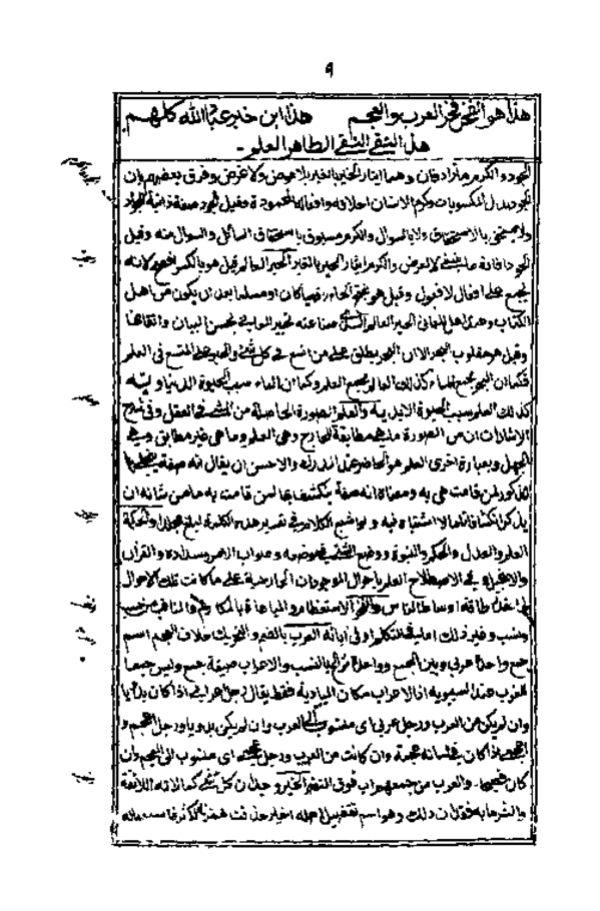 ٩
هذا هو الفخر فخر العرب والعجم هذا ابن خير عباد الله كلهم
هذا التقي النقي الطاهر العلم
الجود والكرم مترادفان وهما ايثار الخير بالغير بلا عوض ولا غرض وفرق بعضهم بان
الجود بذل المكسوبات وكرم الانسان اخلاقه وافعاله المحمودة وقيل الجود صفة ذاتية للجواد
ولا يستحق بالاستحقاق ولا بالسوال والكرم مسبوق باستحقاق السائل والسوال منه وقيل
الجود افادة ما ينبغي لا لعرض والكرم ايثار الخير بالغير الحبر العالم قيل هو بالكسر افصح لانه
يجمع على افعال لا فعول وقيل هو بفتح الحاء ذميا كان او مسلما بعد ان يكون من اهل
الكتاب وعند اهل المعاني الحبر العالم الذي صناعته تحبير المعاني بحسن البيان واتقانها
وقيل هو مقلوب البحر الا ان البحر يطلق على من اتسع في كل شئ والحبر على المتسع في العلم
فكما ان البحر مجمع الماء كذلك العالم مجمع العلم وكما ان الماء سبب الحيوة الدنياوية
كذلك العلم سبب الحيوة الابدية والعلم الصورة الحاصلة من الشئ في العقل وفي شرح
الاشارات ان من الصورة ما هي مطابقة للخارج وهي العلم وما هي غير مطابق وهي
الجهل وبعبارة اخرى العلم هو الحاضر عند المدرك والاحسن ان يقال انه صفة يتجلى بها
المذكور لمن قامت هي به ومعناه انه صفة ينكشف بها لمن قامت به ما من شانه ان
يذكر انكشافا تاما لا اشتباه فيه و
العلم والعدل والحكم والنبوة ووضع الشئ في موضعه وصواب الامر وسداده والقرآن
والانجيل وفي الاصطلاح العلم باحوال الموجودات الخارجية على ما كانت تلك الاحوال
عليها بقدر طاقة اوساط الناس والفخر الاستعظام والمباهاة بالمكارم والمناقب من حسب
ونسب وغير ذلك اما في المتكلم او في ابائه العرب بالضم والتحريك خلاف العجم اسم
جمع واحده عربي وبين الجمع وواحده
للعرب عند السيبويه اذ الاعراب سكان البادية فقط يقال رجل اعرابي اذا كان بدويا
وان لم يكن من العرب ورجل عربي اي منسوب الى العرب وان لم يكن بدويا ورجل اعجم و
اعجمي اذا كان في لسانه عجمة وان كانت من العرب ورجل عجمي اي منسوب الى العجم وان
كان فصيحا والعرب من جمعه اعراب فوق النعم الخير وجدان كل شئ كمالاته اللائقة
والشر ما به فقدان ذلك وهو اسم تفضيل اصله اخير حذفت همزته